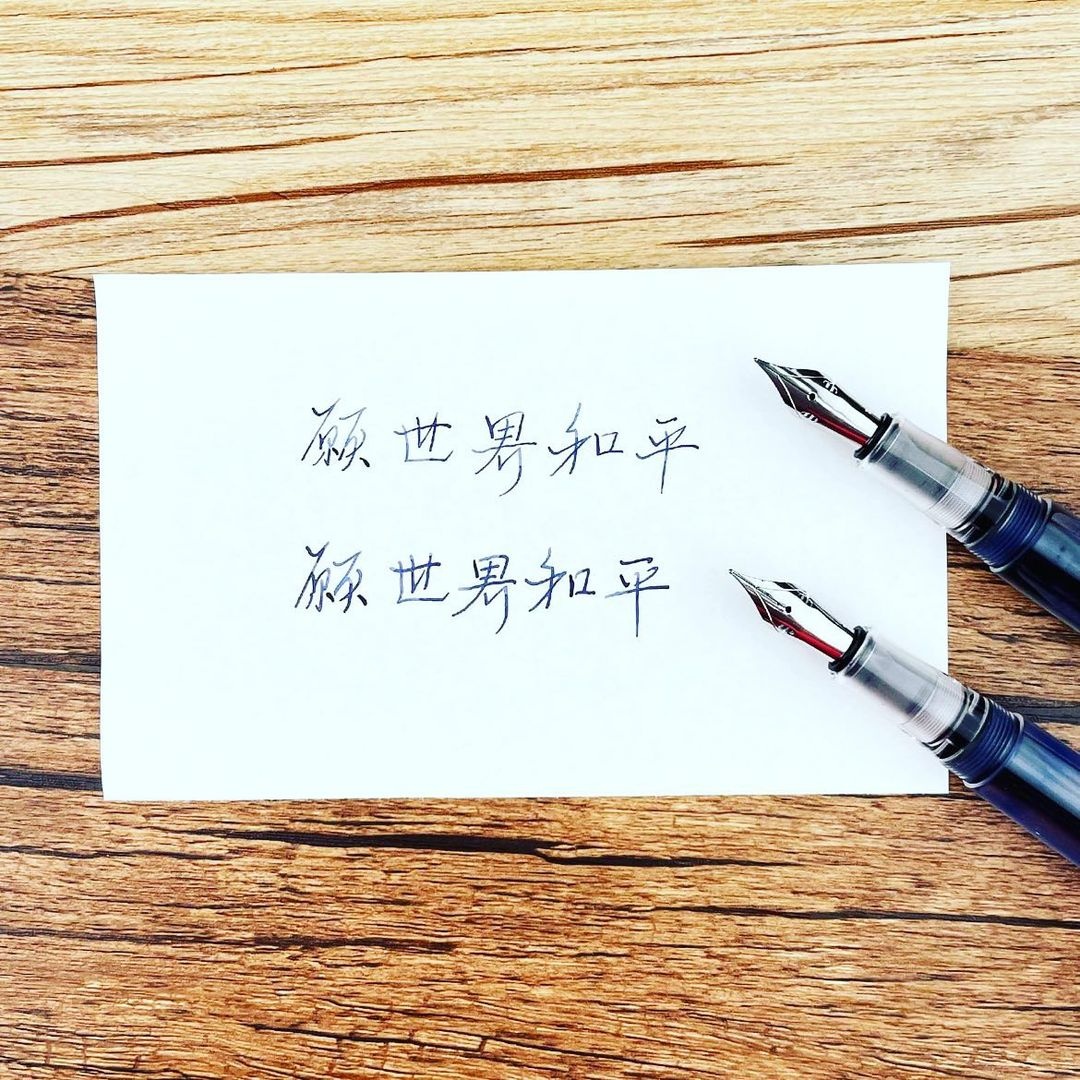 願世界和平
願世界和平